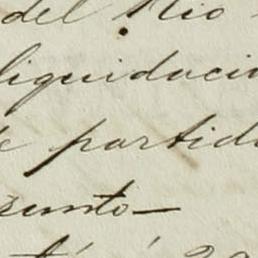 del Rio
liquidacio
e partid
sunto—